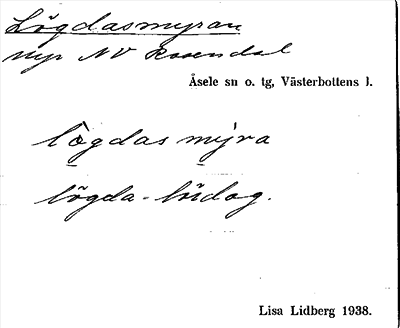 Lögdasmyran
Myr NV Rosendal
Åsele sn o. tg, Västerbottens l.
lögdas myra
lögda - lördag.
Lisa Lidberg 1938.